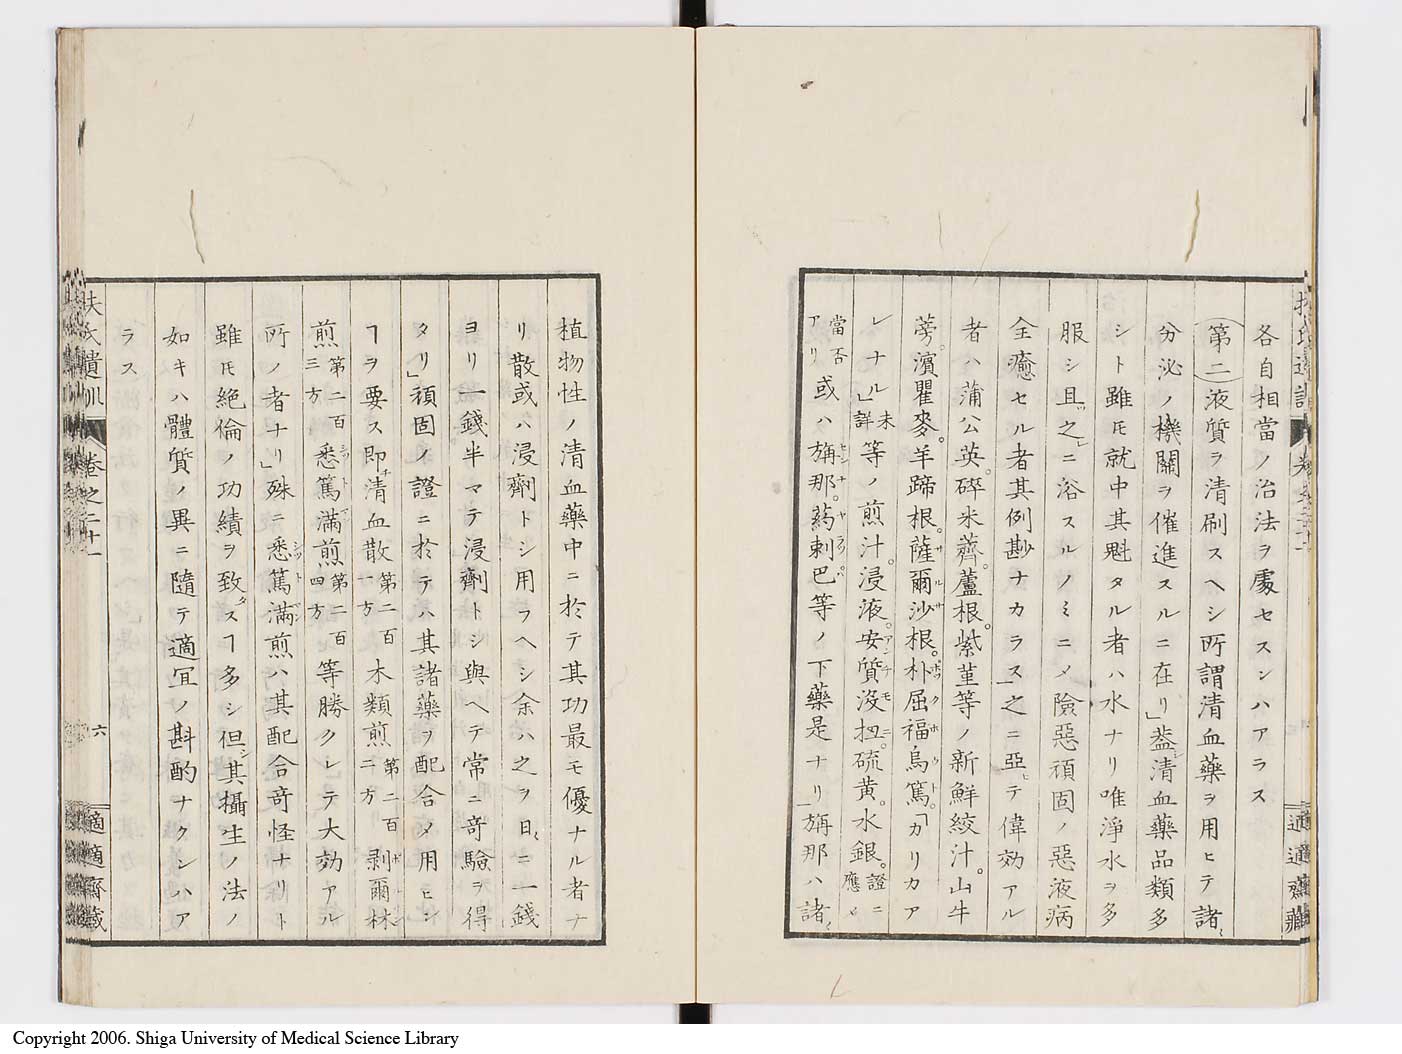 各自相當ノ治法ヲ處セスンハアラス
第二液質ヲ清刷スヘシ所謂清血藥ヲ用ヒテ諸
分泌ノ機關ヲ催進スルニ在リ」蓋シ清血藥品類多
シト雖モ就中其魁タル者ハ水ナリ唯淨水ヲ多
服シ且ツ之ニ浴スルノミニメ險惡頑固ノ惡液病
全癒セル者其例尠ナカラス」之ニ亞テ偉効アル
者ハ蒲公英。碎米薺。蘆根。紫菫等ノ新鮮絞汁。山牛
蒡。濱瞿麥。羊蹄根。薩爾沙根。朴屈福烏篤。「カリカア
レナル」未詳等ノ煎汁。浸液。安質沒扭。硫黄。水銀。證ニ應メ
當否アリ或ハ旃那。葯刺巴等ノ下藥是ナリ」旃那ハ諸
植物性ノ清血藥中ニ於テ其功最モ優ナル者ナ
リ散或ハ浸劑トシ用ヲヘシ余ハ之ヲ日ニ一錢
ヨリ一錢半マテ浸劑トシ與ヘテ常ニ奇驗ヲ得
タリ」頑固ノ證ニ於テハ其諸藥ヲ配合メ用ヒン
ヿヲ要ス即チ清血散第二百一方木類煎第二百二方剥爾林
煎第二百三方悉篤滿煎第二百四方等勝クレテ大効アル
所ノ者ナリ」殊ニ悉篤滿煎ハ其配合奇怪ナリト
雖モ絶倫ノ功績ヲ致スヿ多シ但シ其攝生ノ法ノ
如キハ體質ノ異ニ隨テ適宜ノ斟酌ナクンハア
ラス
扶氏遺訓
卷之二十一
六
適適齋藏
Copyright 2006. Shiga University of Medical Science Library